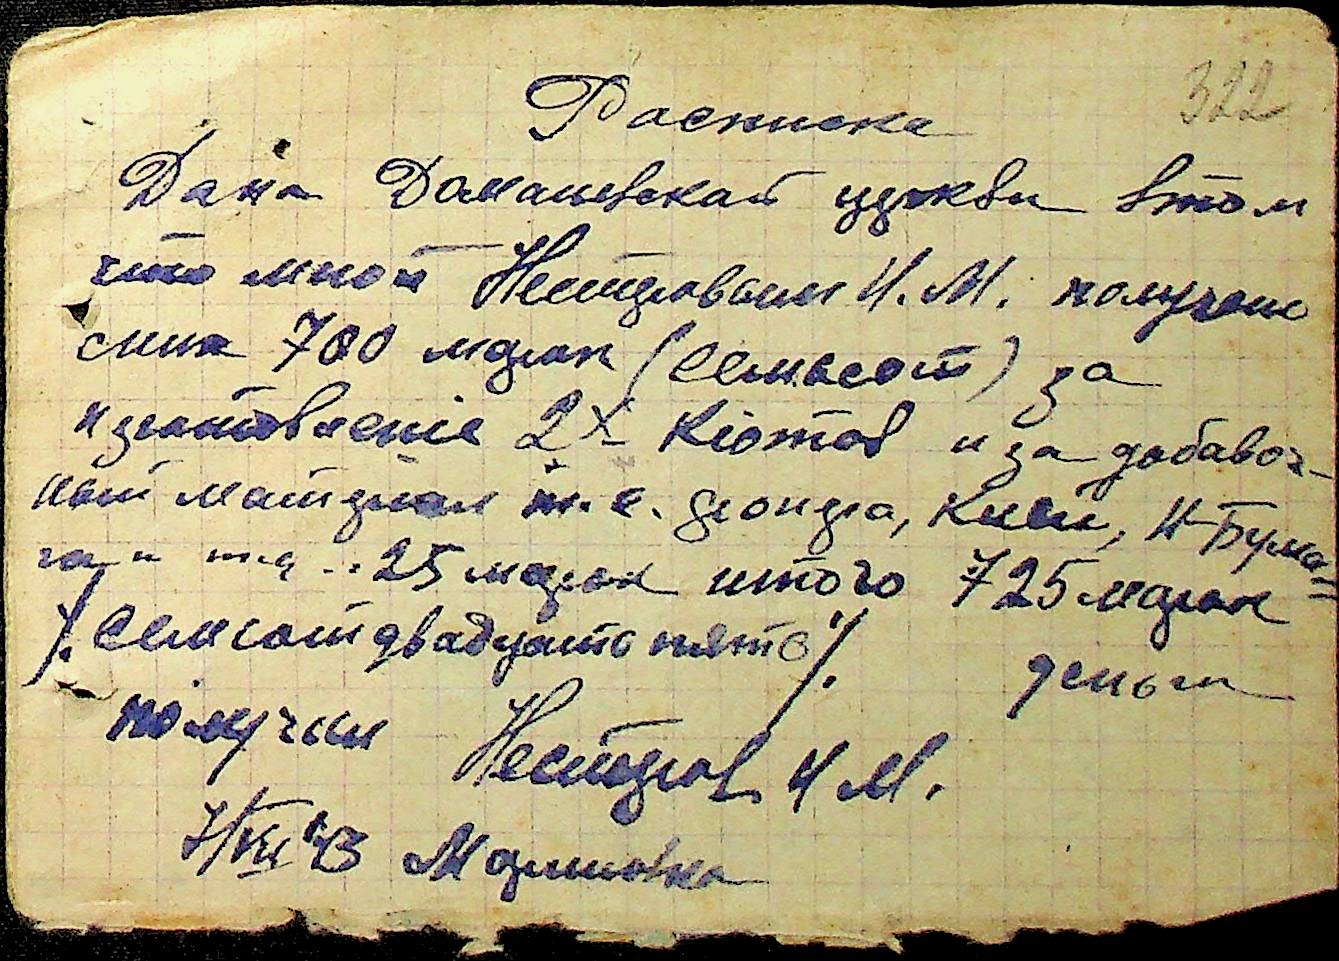 322
Расписка
Дана Доманевской церкви втом
что мной Нестеровым И.М. получено
сумм 700 марок (Семьсот) за
изготовление 2х Кіотов и за добавоч-
ный материал т.е. фонера, Клей, Н-Бума=
га и т.д .. 25 марок итого 725 марок
/. Семсот двадцать пять /. деньги
получил Нестеров И М.
43 Мариновка